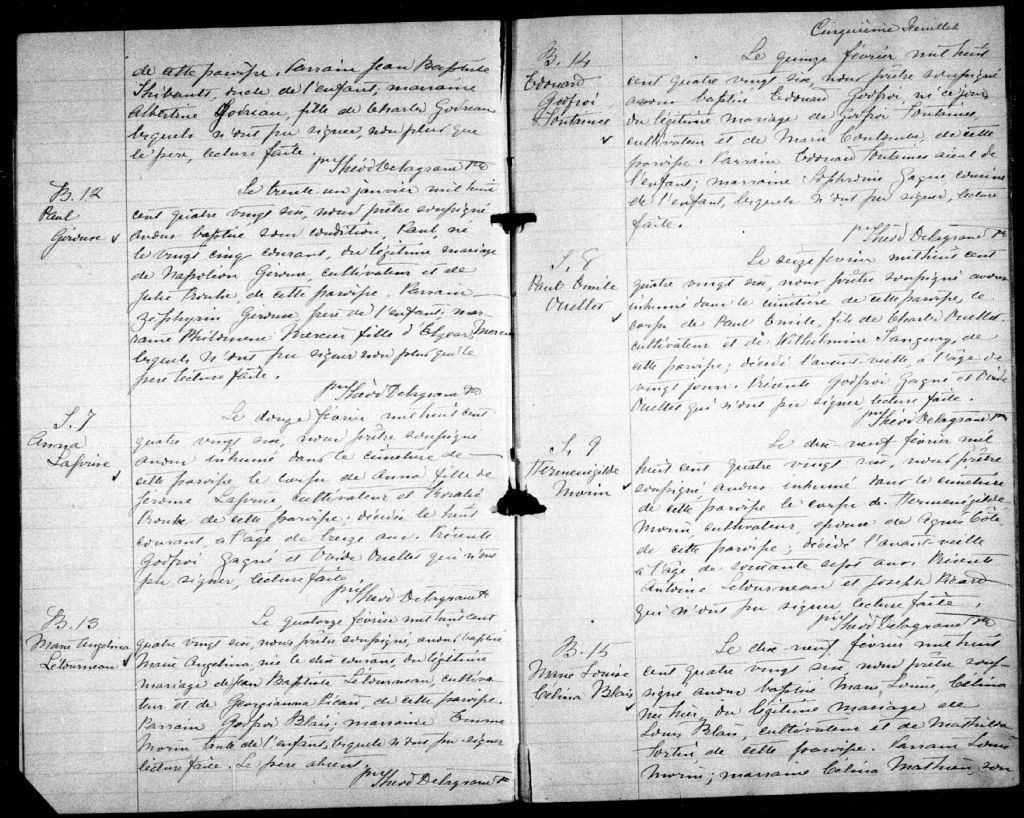 de cette paroisse. Parrain Jean Baptiste
Thibault, oncle de l'enfant, marraine
Albertine Godreau, fille de Charles Godreau
lesquels n'ont pu signer, non plus que
le père, lecture faite.
ptre Théod Delagrave
B. 12
Paul
Girouse
Le trente un janvier mil huit
cent quatre vingt six, nous prêtre soussigné
avons baptisé sous condition, Paul, né
le vingt cinq courant, du légitime mariage
de Napoléon Girouse, cultivateur et de
Julie Proulx, de cette paroisse. Parrain
Zéphyrin Girouse, père de l'enfant, mar-
raine Philomène Mercier fille d'Elzear Mercier
lesquels n'ont pu signer non plus que le
père lecture faite.
Théod Delagrave
S. 7
Anna
Laforise
Le douze février mil huit cent
quatre vingt six, nous prêtre soussigné
avons inhumé dans le cimetière de
cette paroisse le corps de Anna fille de
Jérôme, cultivateur et Rosalie
Proulx de cette paroisse; décédée le huit
courant, à l'âge de treize ans. Présents
Godfroi Gagné et Ovide Ouellet qui n'ont
pu signer, lecture faite.
Théod Delagrave
B. 13
Marie Angelina
Létourneau
Le quatorze février mil huit cent
quatre vingt six, nous prêtre soussigné, avons baptisé
Marie Angelina, née le dix courant, du légitime
mariage de Jean Baptiste Létourneau, cultiva-
teur et de Georgianna Picard, de cette paroisse.
Parrain Godfroi Blais; marraine Emma
Morin tante de l'enfant, lesquels n'ont pu signer
lecture faite. Le père absent.
Théod Delagrave
Cinquième Feuillet
B. 14
Edouard
Godfroi
Fontaines
Le quinze février mil huit
cent quatre vingt six, nous prêtre soussigné
avons baptisé Edouard Godfroi, né ce jour
du légitime mariage de Godfroi Fontaines,
cultivateur et de Marie Coulombe, de cette
paroisse. Parrain Edouard Fontaines aieul de
l'enfant; marraine Sophronie Gagné cousine
de l'enfant, lesquels n'ont pu signer, lecture
faite.
Théod Delagrave
S. 8
Paul Emile
Ouellet
Le seize février mil huit cent
quatre vingt six, nous prêtre soussigné avons
inhumé dans le cimetière de cette paroisse, le
corps de Paul Emile, fils de Charles Ouellet
cultivateur et de Wilhelmine Tanguay, de
cette paroisse; décédé l'avant-veille à l'âge de
vingt jours. Présents Godfroi Gagné et Ovide
Ouellet qui n'ont pu signer, lecture faite.
Théod Delagrave
S. 9
Hermenégilde
Morin
Le dix-neuf février mil
huit cent quatre vingt six, nous prêtre
soussigné avons inhumé dans le cimetière
de cette paroisse le corps de Hermenégilde
Morin, cultivateur, epoux de Agnès Côté,
de cette paroisse; décédé l'avant-veille
à l'âge de soixante sept ans. Présents
Antoine Létourneau et Joseph Picard
qui n'ont pu signer, lecture faite.
Théod Delagrave
B. 15
Marie Louise
Célina Blais
Le dix-neuf février mil huit
cent quatre vingt six nous prêtre sous-
signé avons baptisé Marie, Louise, Célina
née hier, du légitime mariage de
Louis Blais, cultivateur et de Mathilda
Fortin de cette paroisse. Parrain Louis
Morin; marraine Célina Mathieu, son